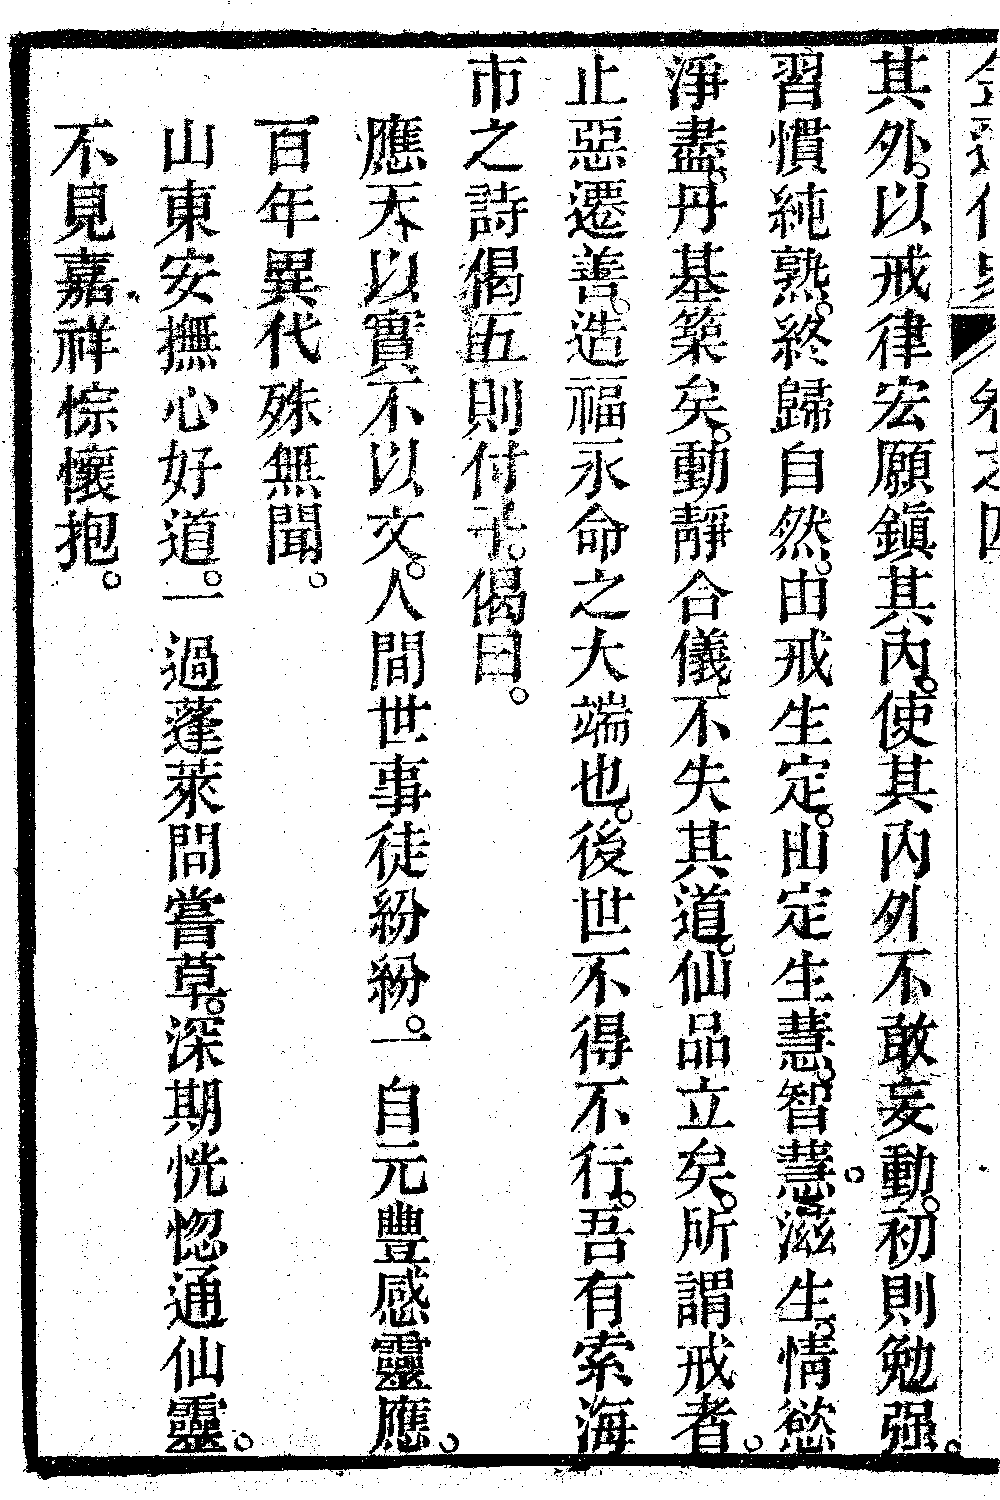 其外。以戒律宏願鎮其內。使其內外不敢妄動。初則勉强。
習慣純熟。終歸自然。由戒生定。由定生慧。智慧滋生。情慾
淨盡。丹基築矣。動靜合儀。不失其道。仙品立矣。所謂戒者。
止惡遷善。造福永命之大端也。後世不得不行。吾有索海
市之詩偈五則付予。偈曰。
應天以實不以文。人間世事徒紛紛。一自元豐感靈應。
百年異代殊無聞。
山東安撫心好道。一過蓬萊問嘗草。深期恍惚通仙靈。
不見嘉祥悰懷抱。